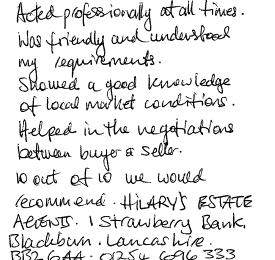 Acted professionally at all times.
Was friendly and understood
my requirements.
Showed a good knowledge
of local market conditions.
Helped in the negotiations
between buyer & seller.
10 out of 10 we would
recommend. HILARY'S ESTATE
AGENTS. 1 Strawberry Bank,
Blackburn. Lancashire.
BB2 6AA. 01254 696 333